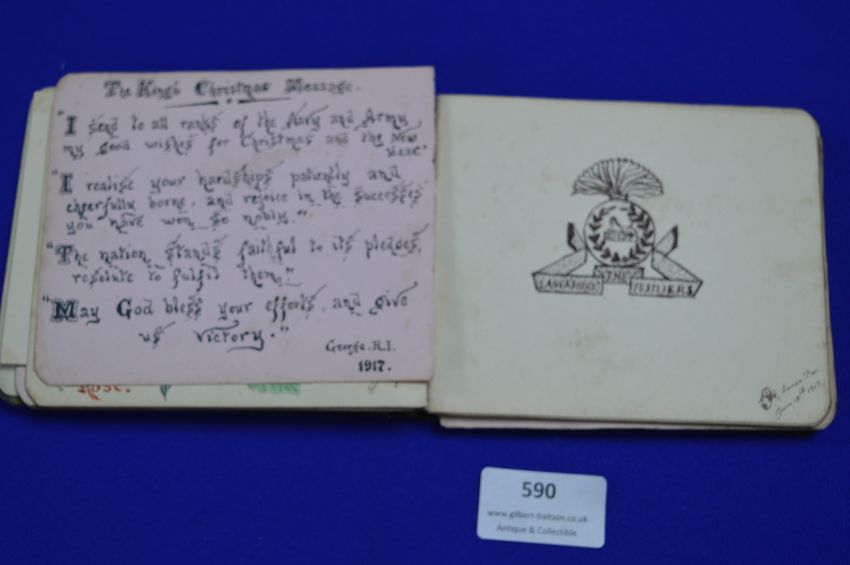 The King's Christmas Message.
"I send to all ranks of the Navy and Army
my good wishes for Christmas and the New
Year."
"I realise your hardships patiently and
cheerfully borne, and rejoice in the successes
you have won so nobly."
"The nation stands faithful to its pledges,
resolute to fulfil them."
"May God bless your efforts, and give
us victory."
George. R.I.
1917.
Rose.
THE
LANCASHIRE FUSILIERS
June 18th 1917
590
www.gilbert-baitson.co.uk
Antique & Collectible